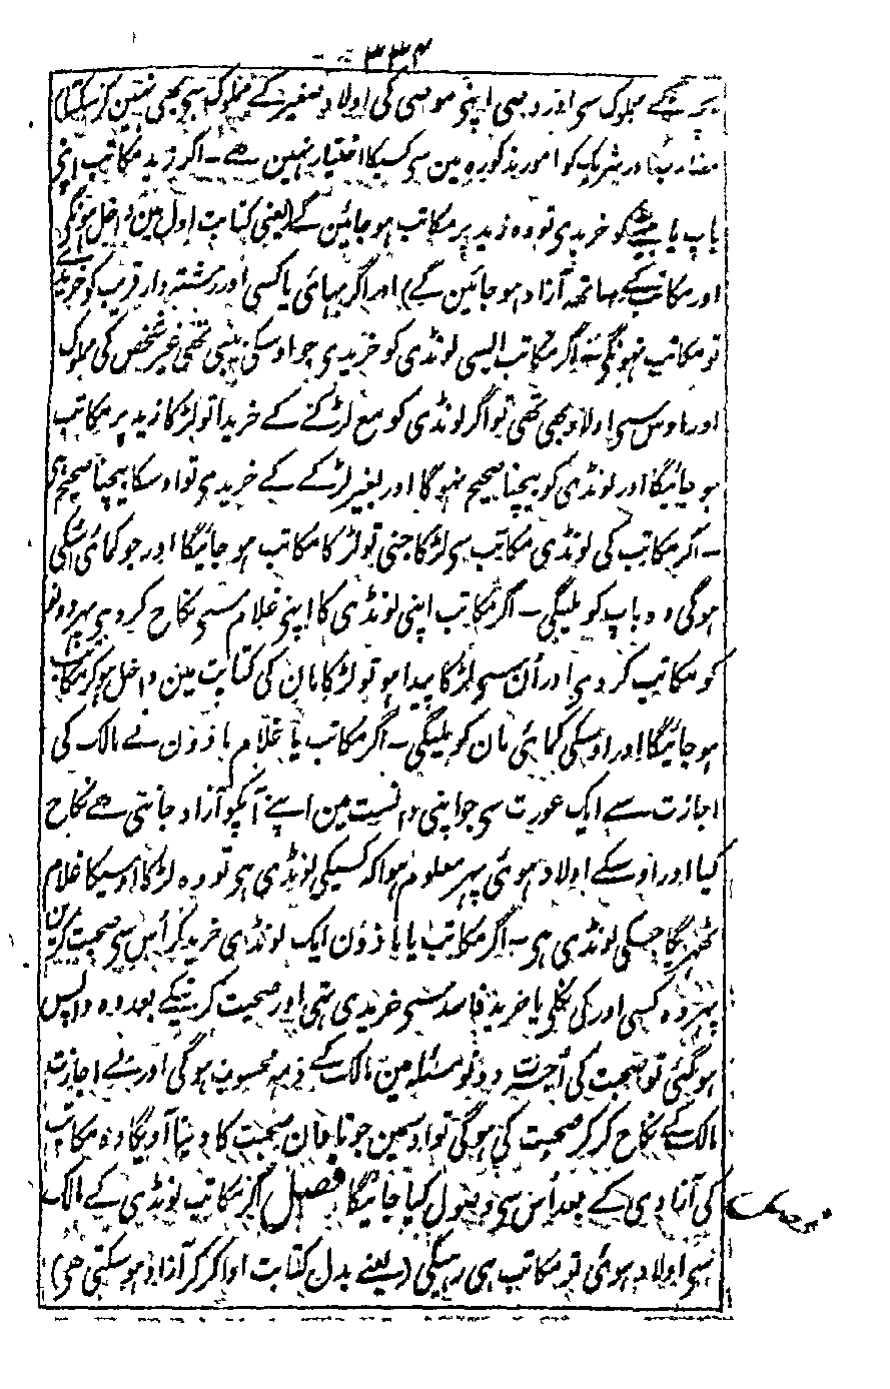 ۳۳۴
بچہ کے مملوک سی اور وصی اپنی موصی کی اولاد صغیر کے مملوک سی بھی نہین کر سکتا)
مضارب اور شریک کو امور مذکورہ مین سی کسیکا اختیار نہین ہے ۔ اگر زید مکاتب اپنی
باپ یا بیٹے کو خریدی تو وہ زید پر مکاتب ہو جائین گے (یعنی کتابت اول مین داخل ہونگی
اور مکاتب کے ساتھ آزاد ہو جائین گے) اور اگر بہائی یا کسی اور رشتہ دار قریب کو خریدے
تو مکاتب نہونگے اگر مکاتب ایسی لونڈی کو خریدی جو اوسکی بی بی تھی غیر شخص کی مملوک
اور اوس سی اولاد بھی تھی تو اگر لونڈی کو مع لڑکے کے خریدا تو لڑکا زید پر مکاتب
ہو جائیگا اور لونڈی کو بیچنا صحیح نہوگا اور بغیر لڑکے کے خریدی تو اوسکا بیچنا صحیح ہی
۔ اگر مکاتب کی لونڈی مکاتب سی لڑکا جنی تو لڑکا مکاتب ہو جائیگا اور جو کمائی اسکی
ہوگی وہ باپ کو ملیگی ۔ اگر مکاتب اپنی لونڈی کا اپنی غلام سی نکاح کر دی پہر دونو
کو مکاتب کر دی اور اُن سی لڑکا پیدا ہو تو لڑکا مان کی کتابت مین داخل ہوکر مکاتب
ہو جائیگا اور اوسکی کمائی مان کو ملیگی ۔ اگر مکاتب یا غلام ماذون نے مالک کی
اجازت سے ایک عورت سی جو اپنی دانست مین اپنے آپکو آزاد جانتی ہے نکاح
کیا اور اوسکے اولاد ہوئی پہر معلوم ہوا کہ کسیکی لونڈی ہی تو وہ لڑکا اوسیکا غلام
ٹھہریگا جسکی لونڈی ہی ۔ اگر مکاتب یا ماذون ایک لونڈی خرید کر اُس سی صحبت کرین
پہر وہ کسی اور کی نکلی یا خرید فاسد سی خریدی تھی اور صحبت کرنیکے بعد وہ واپس
ہوگئی تو صحبت کی اُجرت دونو مسئلہ مین مالک کے ذمہ محسوب ہوگی اور بے اجازت
مالک کے نکاح کر کر صحبت کی ہوگی تو اوسمین جو تاوان صحبت کا دینا آویگا وہ مکاتب
کی آزادی کے بعد اُس سی وصول کیا جائیگا فصل اگر مکاتب لونڈی کے مالک
سی اولاد ہوئی تو مکاتب ہی رہیگی (یعنے بدل کتابت ادا کر کر آزاد ہو سکتی ہی)